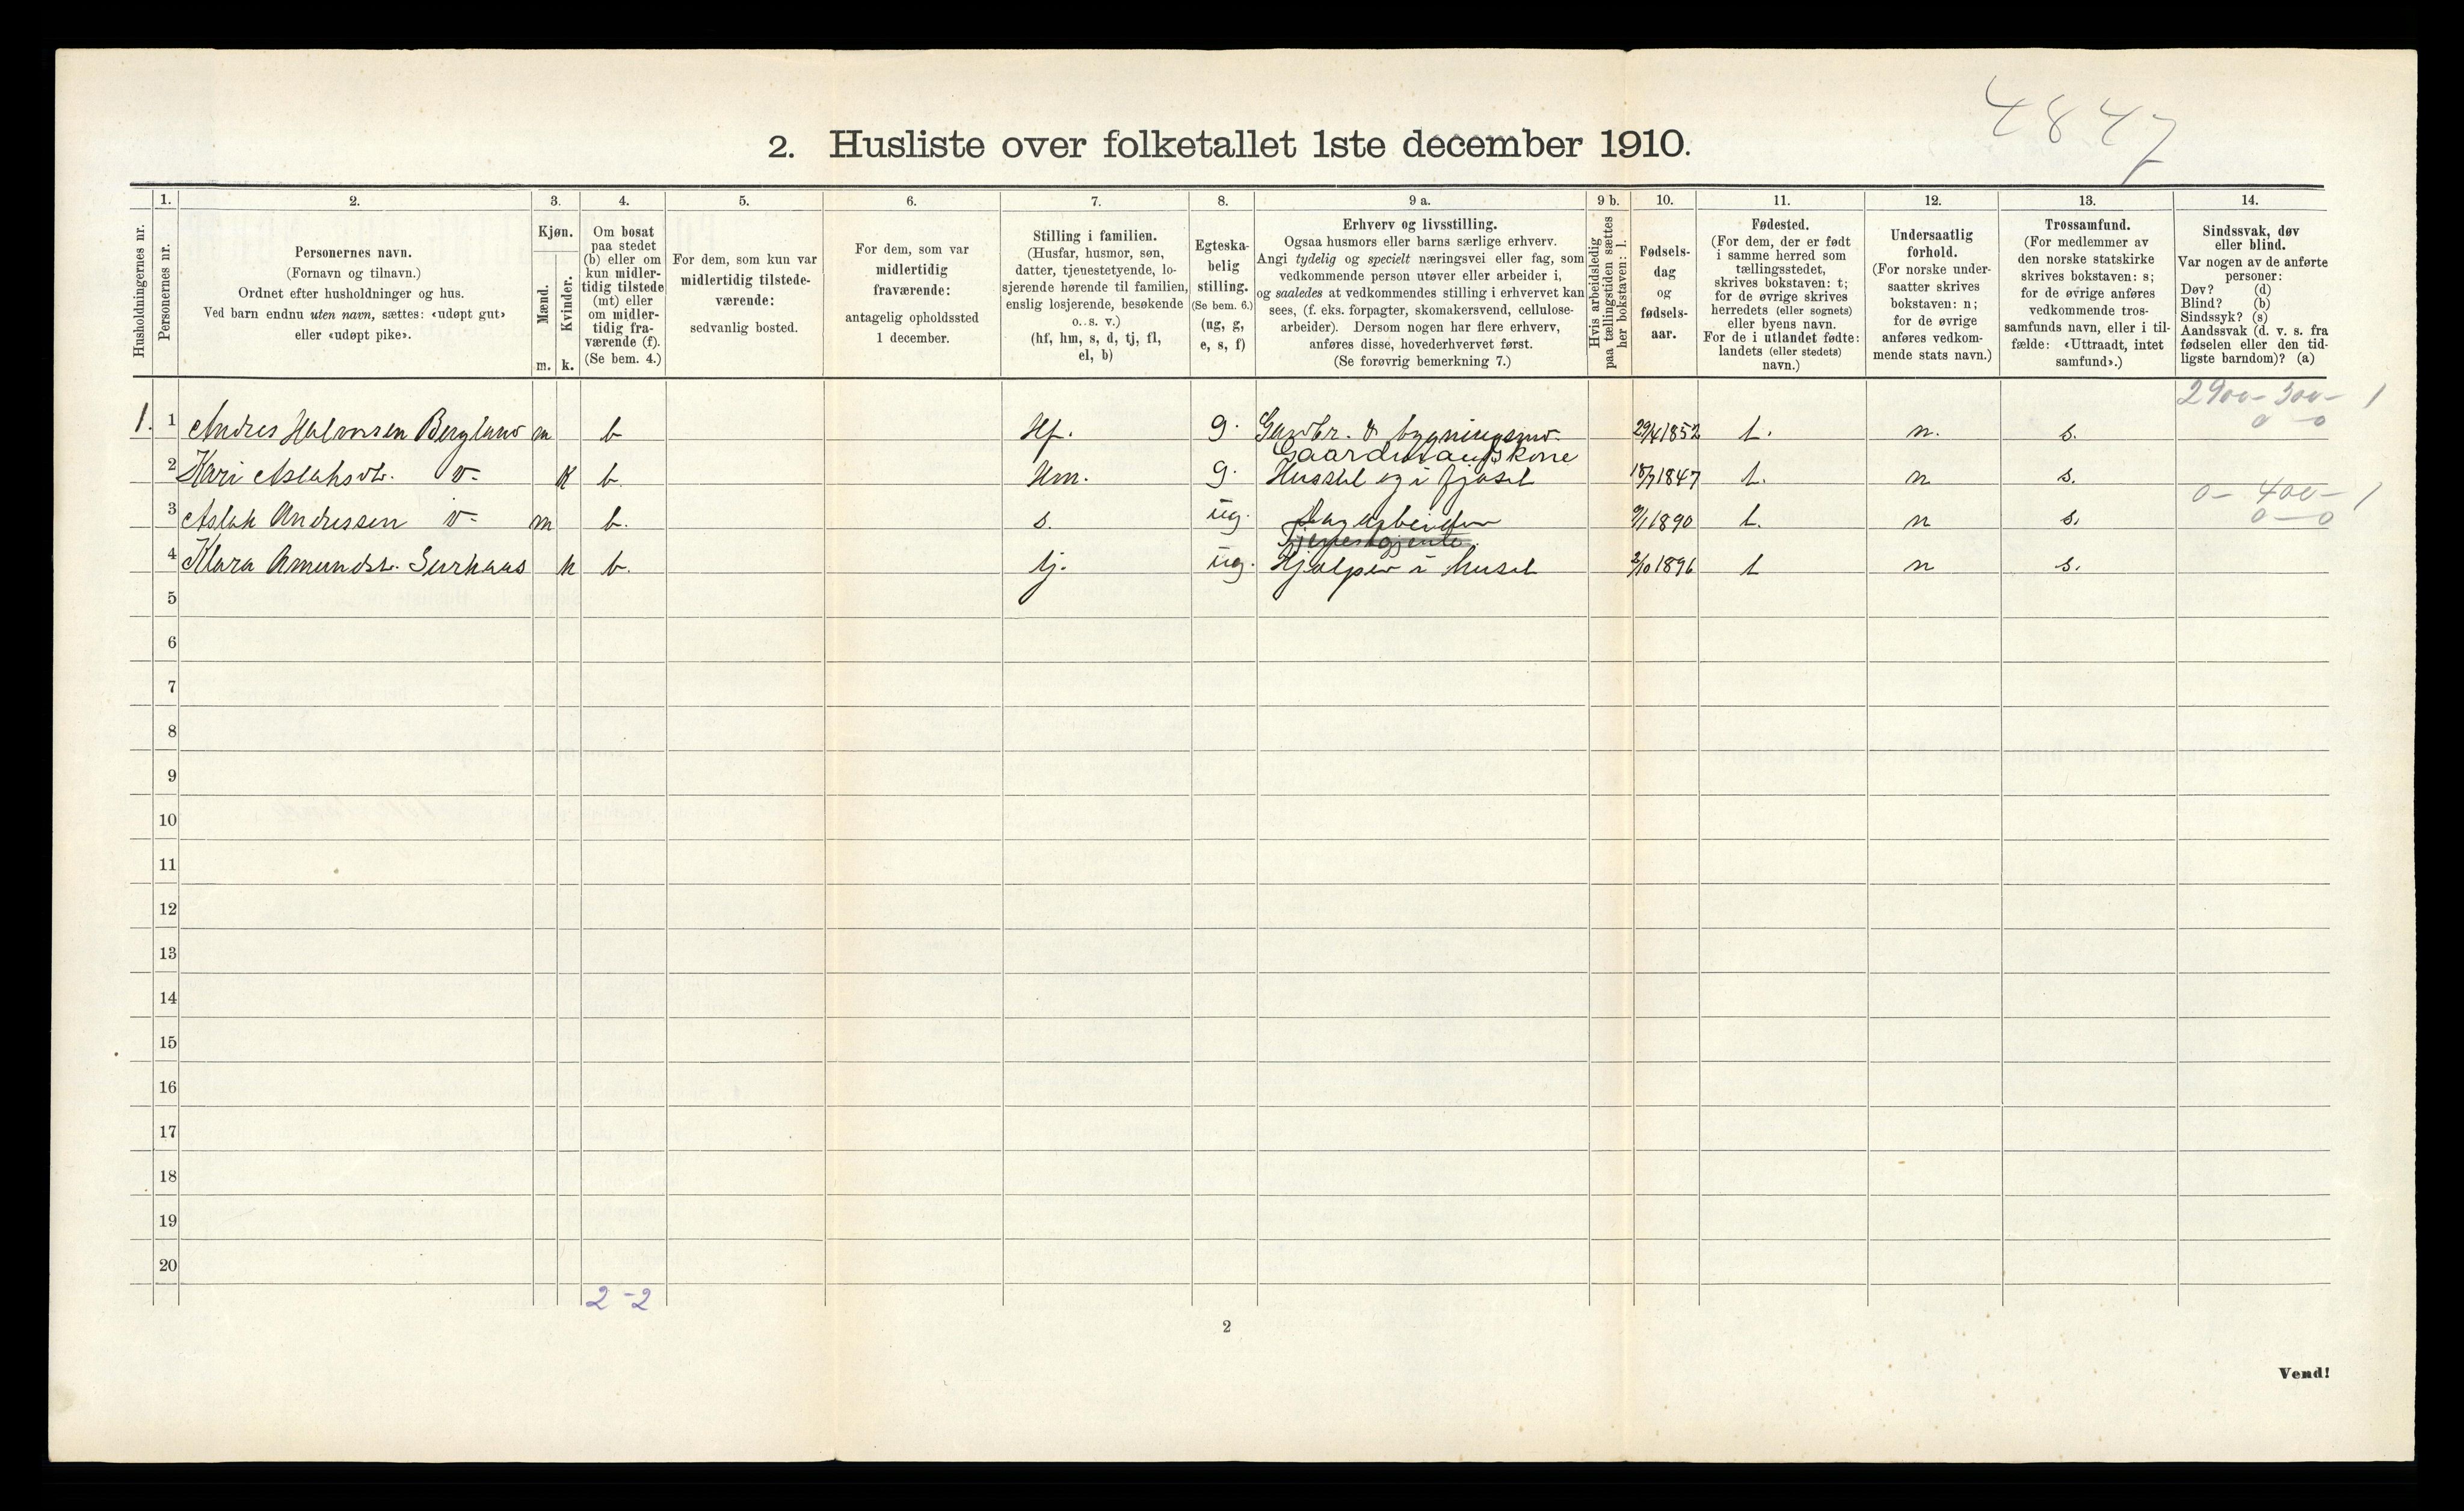 4847
2. Husliste over folketallet 1ste december 1910.
Husholdningernes nr.
1.
Personernes nr.
2.
Personernes navn.
(Fornavn og tilnavn.)
Ordnet efter husholdninger og hus.
Ved barn endnu uten navn, sættes: «udøpt gut»
eller «udøpt pike».
3.
Kjøn.
Mænd.
Kvinder.
m. k.
4.
Om bosat
paa stedet
(b) eller om
kun midler-
tidig tilstede
(mt) eller
om midler-
tidig fra-
værende (f).
(Se bem. 4.)
5.
For dem, som kun var
midlertidig tilstede-
værende:
sedvanlig bosted.
6.
For dem, som var
midlertidig
fraværende:
antagelig opholdssted
1 december.
7.
Stilling i familien.
(Husfar, husmor, søn,
datter, tjenestetyende, lo-
sjerende hørende til familien,
enslig losjerende, besøkende
o. s. v.)
(hf, hm, s, d, tj, fl,
el, b)
8.
Egteska-
belig
stilling.
(Se bem. 6.)
(ug, g,
e, s, f)
9 a.
Erhverv og livsstilling.
Ogsaa husmors eller barns særlige erhverv.
Angi tydelig og specielt næringsvei eller fag, som
vedkommende person utøver eller arbeider i,
og saaledes at vedkommendes stilling i erhvervet kan
sees, (f. eks. forpagter, skomakersvend, cellulose-
arbeider). Dersom nogen har flere erhverv,
anføres disse, hovederhvervet først.
(Se forøvrig bemerkning 7.)
9 b.
Hvis arbeidsledig
paa tællingstiden sættes
her bokstaven: l.
10.
Fødsels-
dag
og
fødsels-
aar.
11.
Fødested.
(For dem, der er født
i samme herred som
tællingsstedet,
skrives bokstaven: t;
for de øvrige skrives
herredets (eller sognets)
eller byens navn.
For de i utlandet fødte:
landets (eller stedets)
navn.)
12.
Undersaatlig
forhold.
(For norske under-
saatter skrives
bokstaven: n;
for de øvrige
anføres vedkom-
mende stats navn.)
13.
Trossamfund.
(For medlemmer av
den norske statskirke
skrives bokstaven: s;
for de øvrige anføres
vedkommende tros-
samfunds navn, eller i til-
fælde: «Uttraadt, intet
samfund».)
14.
Sindssvak, døv
eller blind.
Var nogen av de anførte
personer:
Døv? (d)
Blind? (b)
Sindssyk? (s)
Aandssvak (d. v. s. fra
fødselen eller den tid-
ligste barndom)? (a)
2900 - 300 - 1
0 - 0
1. 1 Andres Halvorsen Bergland m b Hf. g. Gardbr. & bygningsmd. 29/4 1852 t. n. s.
Gaardmandskone
2 Kari Aslaksdt. K b. Hm. g. Husstel og i fjøset 1847 t. n s.
0 - 400 - 1
0 - 0
3 Aslak Andressen m b. s. ug. Dagarbeider 1890 t. n s.
Tjenestegjente
4 Klara Amundst. k b. tj. ug. Hjælper i huset 2/10 1896 t n s.
5
6
7
8
9
10
11
12
13
14
15
16
17
18
19
20
2 - 2
2
Vend!